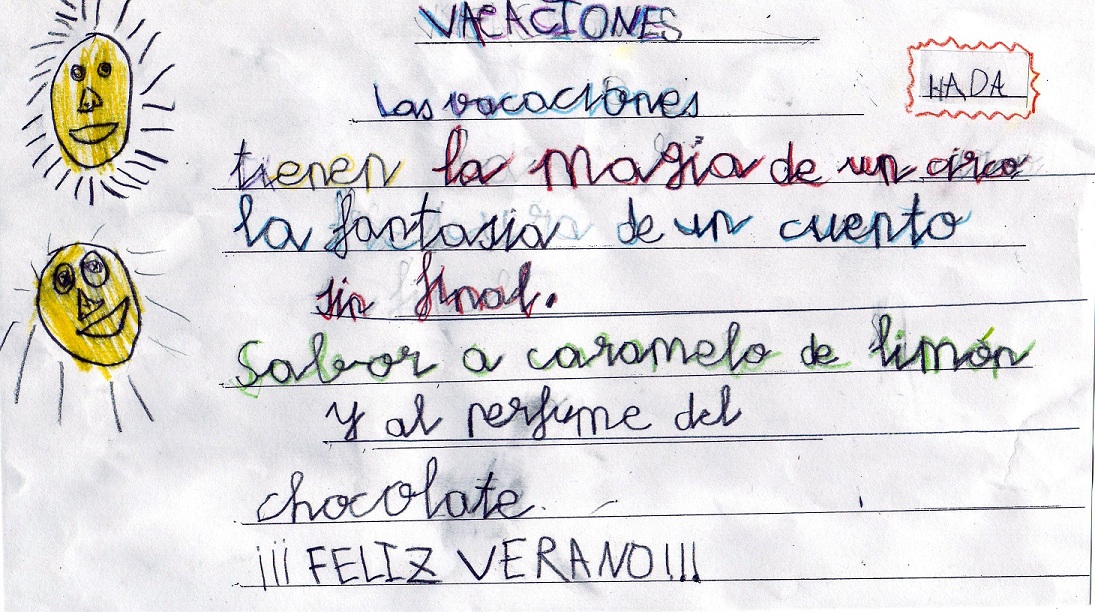 VACACIONES
HADA
Las vacaciones
tienen la magia de un circo
la fantasia de un cuento
sin final.
Sabor a caramelo de limón
y al perfume del
chocolate.
¡¡¡FELIZ VERANO!!!